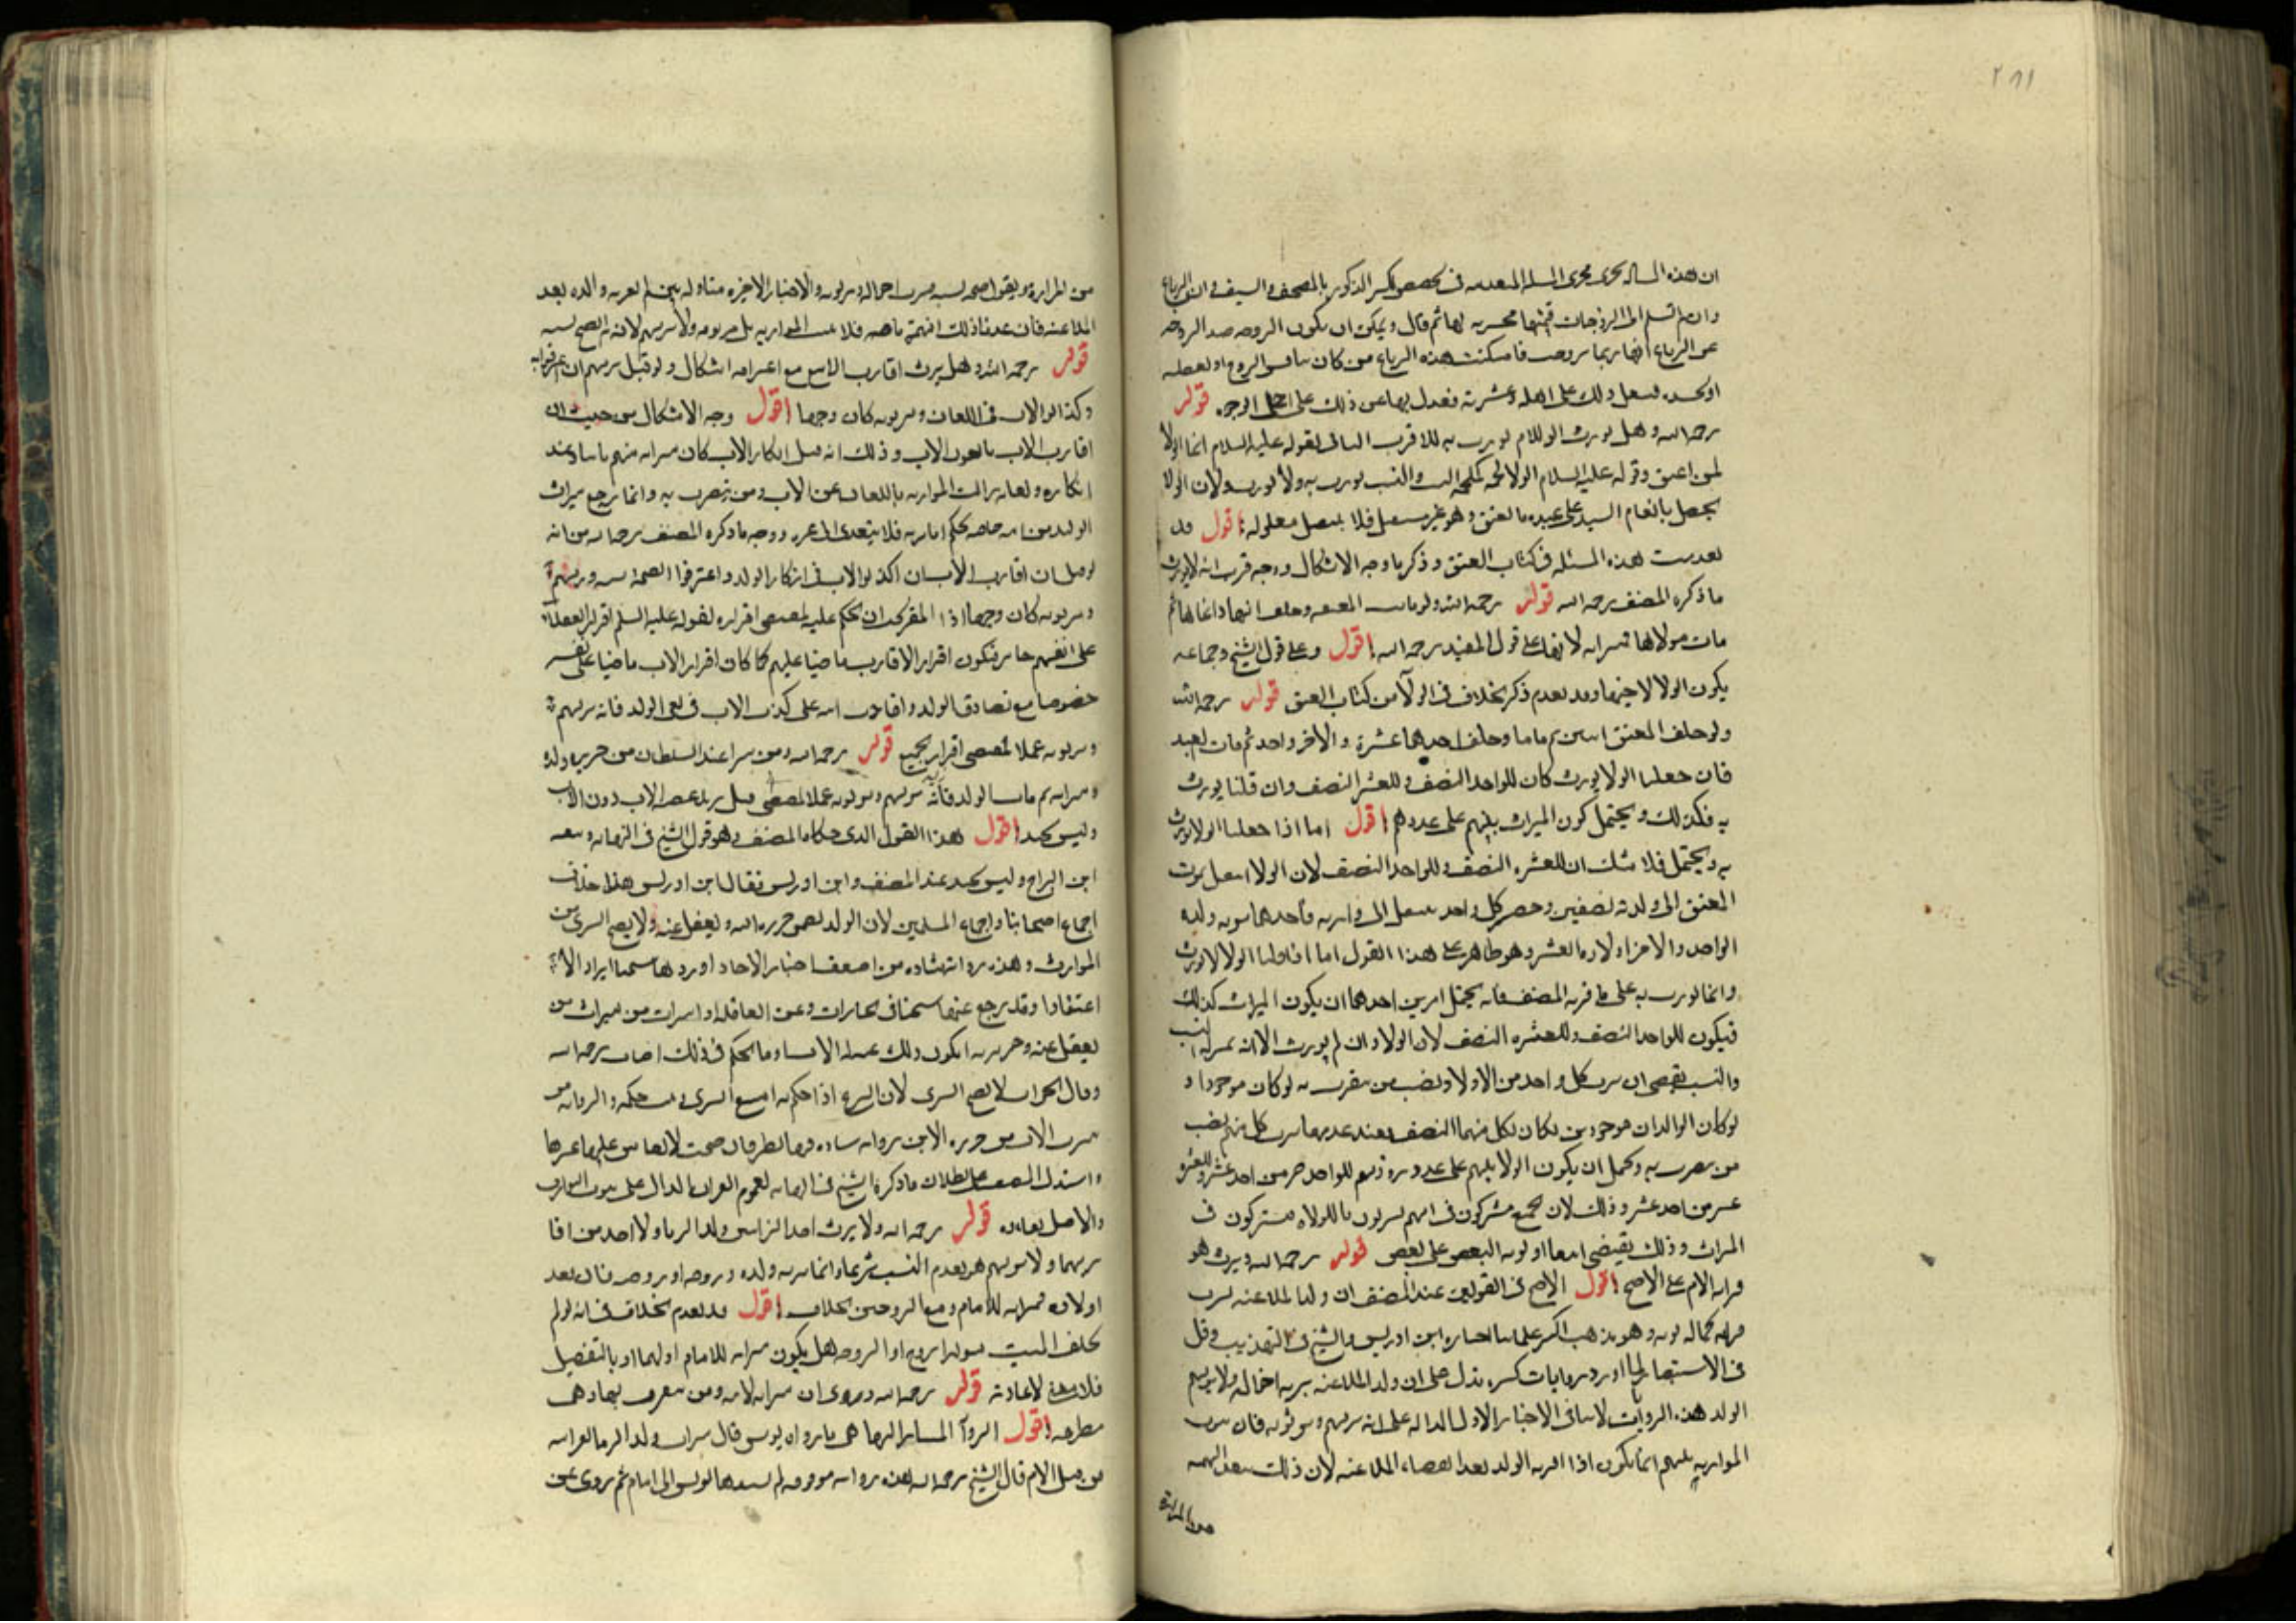 ان هذه المساله تجرى مجرى المسئله المتقدمه فى تخصيص اكبر الذكور بالمصحف والسيف وان الرباع
وان لم تسلم الى الزوجات قيمتها محسوبه لها ثم قال ويمكن ان يكون الزوجه صد الزوجه
عن الرباع انها ربما تزوجت فاسكنت هذه الرباع من كان ينافس الزوج او يغبطه
او يحسده فيثقل ذلك على اهله وعشيرته فعدل بها عن ذلك على اجمل الوجوه قوله
رحمه الله وهل يورث الولاء ام يورث به الاقرب الثانى لقوله عليه السلام انما الولا
لمن اعتق وقوله عليه السلام الولا لحمه كلحمه النسب والنسب يورث به ولا يورث ولان الولا
يحصل بانعام السيد على عبده بالعتق وهو غير منتقل فلا ينتقل معلوله اقول قد
تقدمت هذه المسئله فى كتاب العتق وذكرنا وجه الاشكال ووجه قرب انه لا يورث
ما ذكره المصنف رحمه الله قوله رحمه الله ولو ماتت المعتقه وخلف ابنها واخاها ثم
مات مولاها فميراثه لابنها على قول المفيد رحمه الله اقول وعلى قول الشيخ وجماعه
يكون الولا لاخيها وقد تقدم ذكر الخلاف فى الولآ من كتاب العتق قوله رحمه الله
ولو خلف المعتق ابنين ثم ماتا وخلف احدهما عشرة والاخر واحد ثم مات العبد
فان جعلنا الولا يورث كان للواحد النصف وللعشر النصف وان قلنا يورث
به فكذلك ويحتمل كون الميراث بينهم على عددهم اقول اما اذا جعلنا الولا يورث
به ويحتمل فلا شك ان للعشره النصف وللواحد النصف لان الولا انتقل بموت
المعتق الى ولديه نصفين وحصه كل واحد ينتقل الى وارثه فاحدهما يرثه ولده
الواحد والاخر اولاده العشر وهو ظاهر على هذا القول اما اذا قلنا الولا لا يورث
وانما يورث به على ما قربه المصنف فانه يحتمل امرين احدهما ان يكون الميراث كذلك
فيكون للواحد النصف وللعشره النصف لان الولا وان لم يورث الا انه بمنزله النسب
والنسب يقتضى ان يرث كل واحد من الاولاد نصيب من يتقرب به لو كان موجودا و
لو كان الوالدان موجودين لكان لكل منهما النصف فعند عدمهما يرث كل منهم نصيب
من يتقرب به ويحتمل ان يكون الولا بينهم على عدد رؤوسهم للواحد جزء من احد عشر وللعشر
عشر من احد عشر وذلك لان الجميع مشتركون فى انهم يرثون بالولاء مشتركون فى
الميراث وذلك يقتضى انتفا اولويه البعض على بعض قوله رحمه الله ويرث هو
قرابه الام على الاصح اقول الاصح فى القولين عند المصنف ان ولد الملاعنه يرث
قرابه كما يرثونه وهو مذهب اكثر علمائنا اختاره ابن ادريس والشيخ فى التهذيب وقال
فى الاستبصار لما اورد روايات كثيره تدل على ان ولد الملاعنه يرثه اخواله ولا يرثهم
الولد هذه الروايات لا تنافى الاخبار الاوله الداله على انه يرثهم ويرثونه فان ثبوت
الموارثه بينهم انما يكون اذا اقر به الولد بعد انقضاء الملاعنه لان ذلك يبعد التهمه
من المراة
من المراة ويقوى صحه نسبه فيرث اخواله ويرثونه والاخبار الاخيره متناوله لمن لم يقر به والده بعد
الملاعنه فان عند ذلك التهمه باقيه فلا تثبت الموارثه بل يرثونه ولا يرثهم لانه لم يصح نسبه
قوله رحمه الله وهل يرث اقارب الاب مع اعترافه اشكال ولو قيل يرثهم ان اعترفوا به
وكذبوا الاب فى اللعان ويرثونه كان وجها اقول وجه الاشكال من حيث ان
اقارب الاب تابعون الاب وذلك انه قبل انكار الاب كان ميراثه منهم ثابتا وعند
انكاره ولعانه زالت الموارثه باللعان عن الاب ومن يتقرب به وانما يرجع ميراث
الولد من ابيه خاصه بحكم اقراره فلا يتعدى الى غيره ووجه ما ذكره المصنف رحمه الله من انه
لو قيل ان اقارب الاب ان اكذبوا الاب فى انكار الولد واعترفوا بصحه نسبه ورثهم
ويرثونه كان وجها اذا المقر يجب ان يحكم عليه بمقتضى اقراره لقوله عليه السلم اقرار العقلاء
على انفسهم جايز فيكون اقرار الاقارب ماضيا عليهم كما كان اقرار الاب ماضيا على نفسه
خصوصا مع تصادق الولد واقارب ابيه على كذب الاب فى نفى الولد فانه يرثهم
ويرثونه عملا بمقتضى اقرار الجميع قوله رحمه الله ومن تبرا عند السلطان من جريره ولده
وميراثه ثم مات الولد فانه يرثهم ويرثونه عملا بمقتضى قيل يرثه عصبه الاب دون الاب
وليس بجيد اقول هذا القول الذى حكاه المصنف وهو قول الشيخ فى النهايه وتبعه
ابن البراج وليس بجيد عند المصنف وابن ادريس فقال ابن ادريس هذا خلاف
اجماع اصحابنا واجماع المسلمين لان الولد يضمن جريره ابيه ويعقل عنه ولا يصح التبرى من
الموارث وهذه روايه شاذه من اضعف اخبار الاحاد اوردها شيخنا ايرادا لا
اعتقادا وقد رجع عنها شيخنا فى الحائريات وعن العاقله اذا تبرات من ميراث من
تعقل عنه وجريرته ايكون ذلك بمنزله الاب وما الحكم فى ذلك اجاب رحمه الله
وقال الجواب لا يصح التبرى لان الشرع اذا حكم به لم ينفع التبرى من حكمه والروايه من
تبرى الاب من جريره الابن روايه شاذه فيها نظر فان صحت لا يقاس عليها غيرها
واستدل المصنف على بطلان ما ذكره الشيخ فى النهايه لعموم القران الدال على ثبوت التوارث
والاصل بقاؤه قوله رحمه الله ولا يرث احد الزانيين ولد الزنا ولا احد من اقا
ربهما ولا يرثهم هو لعدم النسب شرعا وانما يرثه ولده وزوجه او زوجته فان فقد
اولاده فميراثه للامام ومع الزوجين الخلاف اقول قد تقدم الخلاف فى انه لو لم
يخلف الميت سوى الزوج او الزوجه هل يكون ميراثه للامام او لهما او بالتفصيل
فلا وجه لاعادته قوله رحمه الله وروى ان ميراثه لامه ومن يتقرب بها وهى
مطرحه اقول الروآيه المشار اليها هى ما رواه يونس قال ميراث ولد الزنا لقرابته
من قبل الام قال الشيخ رحمه الله هذه روايه موقوفه لم يسندها يونس الى امام ثم روى عن